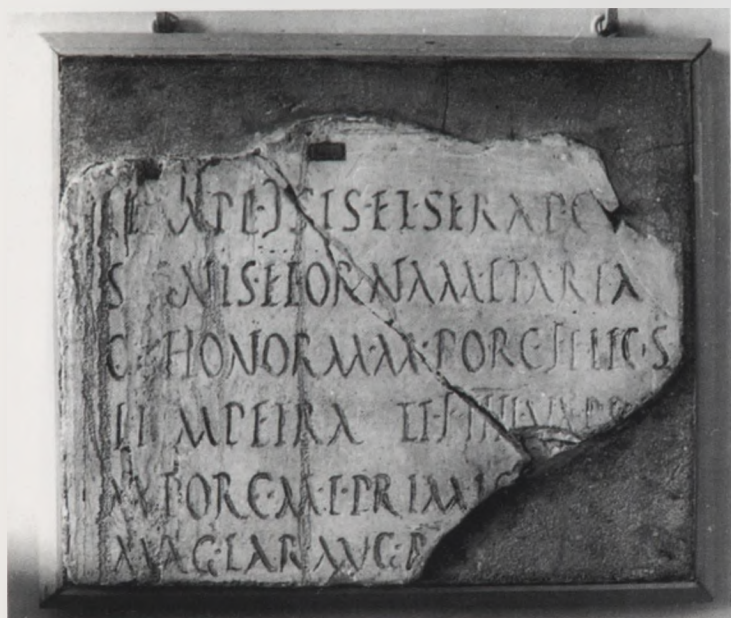 TEMPL·ISIS·ET·SERAP·CV
SIGNIS·ET·ORNAM·ET·AREA
HONOR·M·M·PORC·FELIC·S
ET IMPETRA
M·PORC·M·L·PRIMIG
MAG·LAR·AVG·R